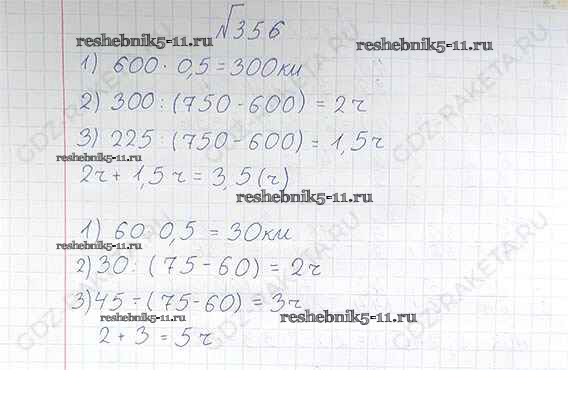 №356
reshebnik5-11.ru
reshebnik5-11.ru
1) 600 · 0,5 = 300 км
2) 300 : (750 - 600) = 2 ч
3) 225 : (750 - 600) = 1,5 ч
reshebnik5-11.ru
2ч + 1,5 ч = 3,5 (ч)
reshebnik5-11.ru
1) 60 0,5 = 30 км
reshebnik5-11.ru
2) 30 : (75 - 60) = 2 ч
3) 45 ÷ (75 - 60) = 3 ч
reshebnik5-11.ru
reshebnik5-11.ru
2 + 3 = 5 ч
GDZ-RAKETA.RU
GDZ-RAKETA.RU
GDZ-RAKETA.RU
GDZ-RAKETA.RU